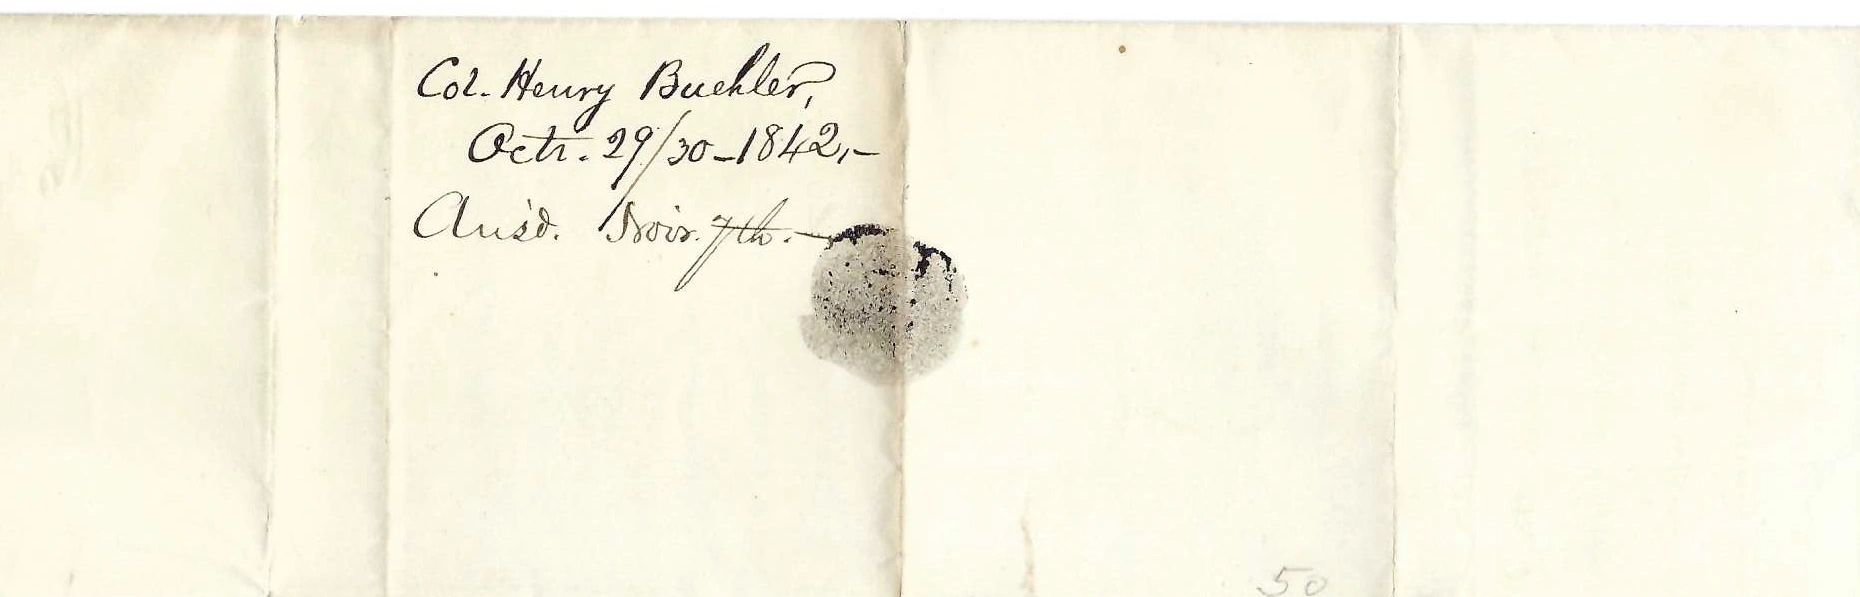 Col. Henry Buehler,
Octr. 29/30-1842,-
Ans'd. Novr. 7th.-
50